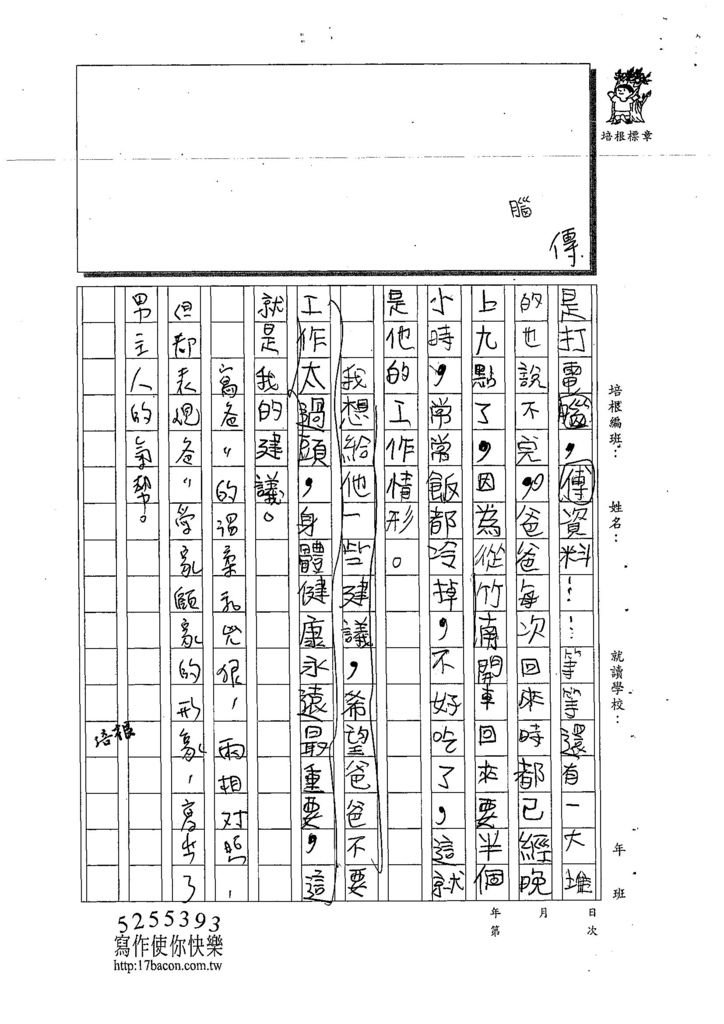 腦
傳
培根標章
培根編班：
姓名：
就讀學校：
年
班
是打電腦，傳資料……等等還有一大堆
的也說不完，爸爸每次回來時都已經晚
上九點了，因為從竹南開車回來要半個
小時，常常飯都冷掉，不好吃了，這就
是他的工作情形。
我想給他一些建議，希望爸爸不要
工作太過頭，身體健康永遠最重要，這
就是我的建議。
寫爸爸的溫柔和兇狠，兩相對照，
但都表現爸爸愛家顧家的形象，寫出了
男主人的氣勢。
培根
年 月 日
第 次
5255393
寫作使你快樂
http:17bacon.com.tw